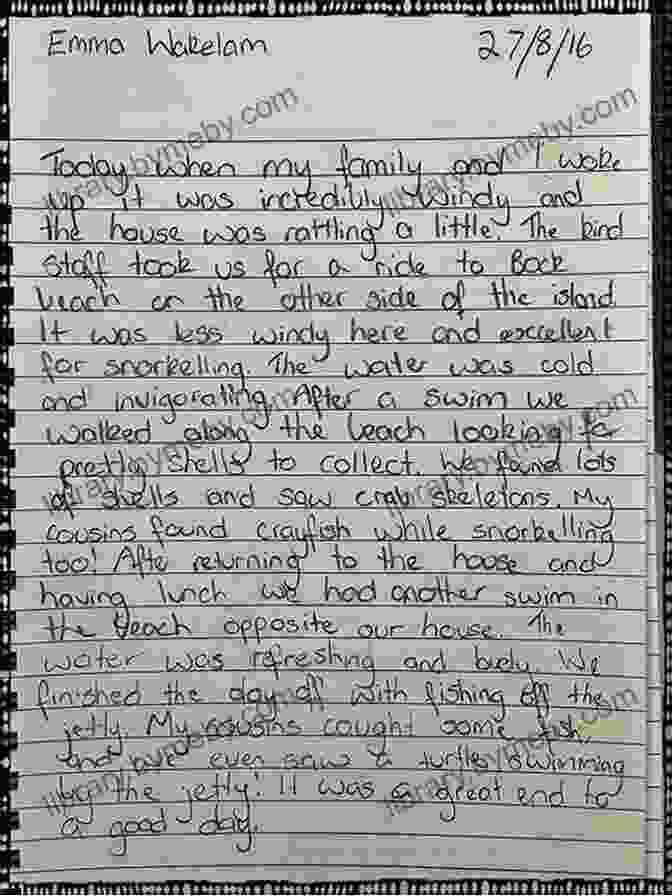 Emma Wakelam 27/8/16
Today when my family and I woke
up it was incredibly windy and
the house was rattling a little. The kind
staff took us for a ride to Back
beach on the other side of the island
It was less windy here and excellent
for snorkelling. The water was cold
and invigorating. After a swim we
walked along the beach looking for
pretty shells to collect. We found lots
of shells and saw crab skeletons. My
cousins found crayfish while snorkelling
too! After returning to the house and
having lunch we had another swim in
the beach opposite our house. The
water was refreshing and lively. We
finished the day off with fishing off the
jetty. My cousins caught some fish
and we even saw a turtle swimming
by the jetty! It was a great end to
a good day.
library.bymeby.com
library.bymeby.com
library.bymeby.com
library.bymeby.com
library.bymeby.com
library.bymeby.com